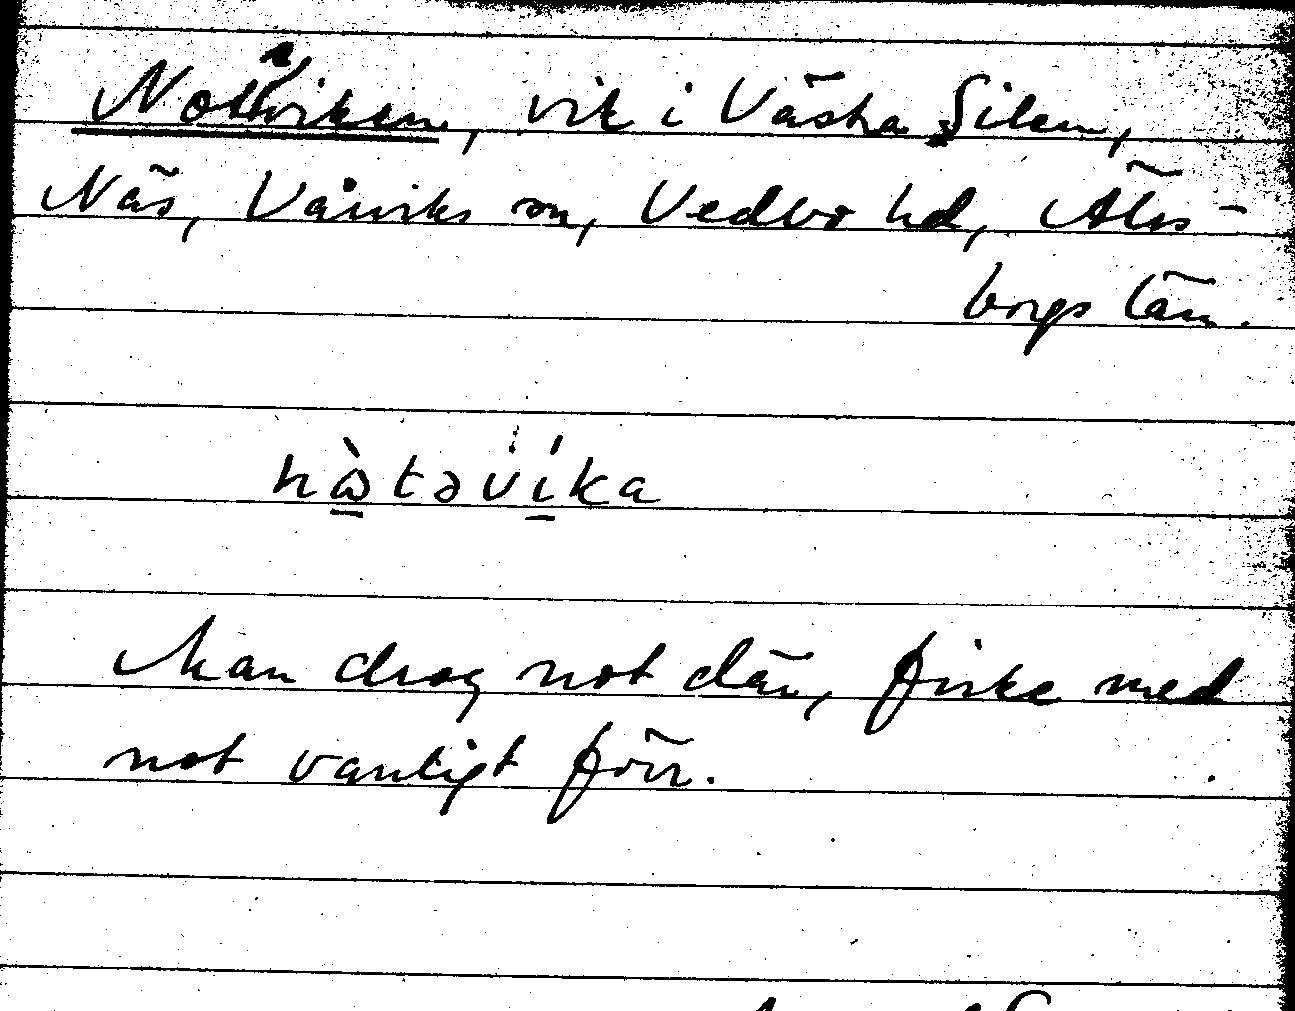 Notviken, vik i Västra Silen,
Näs, Vårviks sn, Vedbo hd, Älvs-
borgs län.
nὼtəvíka
Man drog not där, fiske med
not vanligt förr.